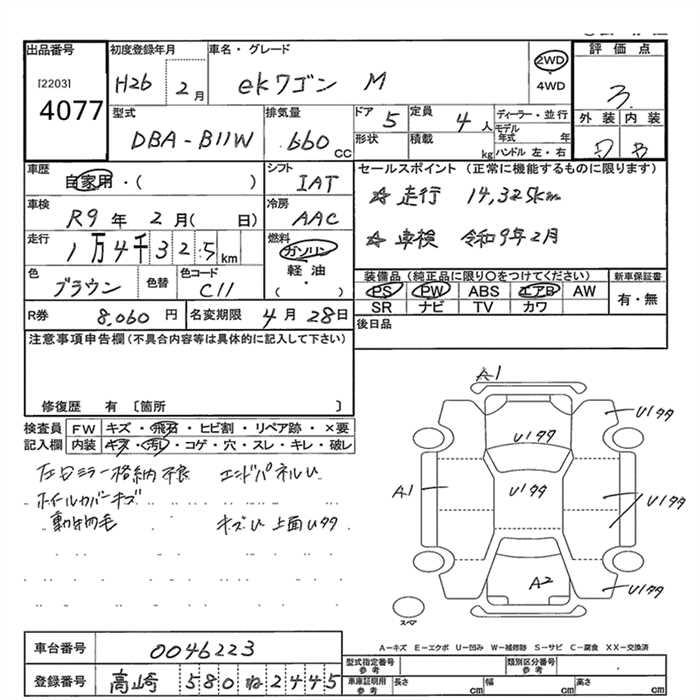 出品番号 初度登録年月 車名・グレード 評価点
[2203] 4077 H26 2月 ekワゴン M 2WD・4WD 3
型式 排気量 ドア 定員 ディーラー・並行 外装 内装
DBA-B11W 660cc 5 4人 モデル年式 年
形状 積載 kg ハンドル 左・右 D B
車歴 シフト セールスポイント (正常に機能するものに限ります)
自家用・( ) IAT ☆ 走行 14,325km
車検 冷房
R9年 2月( 日) AAC ☆ 車検 令和9年2月
走行 燃料
1万4千325km ガソリン 軽油 ( ・ )
色 色替 色コード 装備品 (純正品に限り○をつけてください) 新車保証書
ブラウン C11 PS PW ABS エアB AW 有・無
SR ナビ TV カワ
R券 8,060円 名変期限 4月28日 後日品
注意事項申告欄(不具合内容等は具体的に記入して下さい)
修復歴 有 〔箇所 〕
検査員 FW キズ・飛石・ヒビ割・リペア跡・×要
記入欄 内装 キズ・汚れ・コゲ・穴・スレ・キレ・破レ
左ミラー格納不良 エンドパネルU
ホイルカバーキズ
動物毛 キズU 上面U99
A1
U199
U199
U199
A1
U199
U199
A2
スペア
A-キズ E-エクボ U-凹み W-補修跡 S-サビ C-腐食 XX-交換済
車台番号 0046223
型式指定番号 参考 類別区分番号 参考
登録番号 高崎 580 ね 2445
車庫証明用 参考 長さ cm 幅 cm 高さ cm